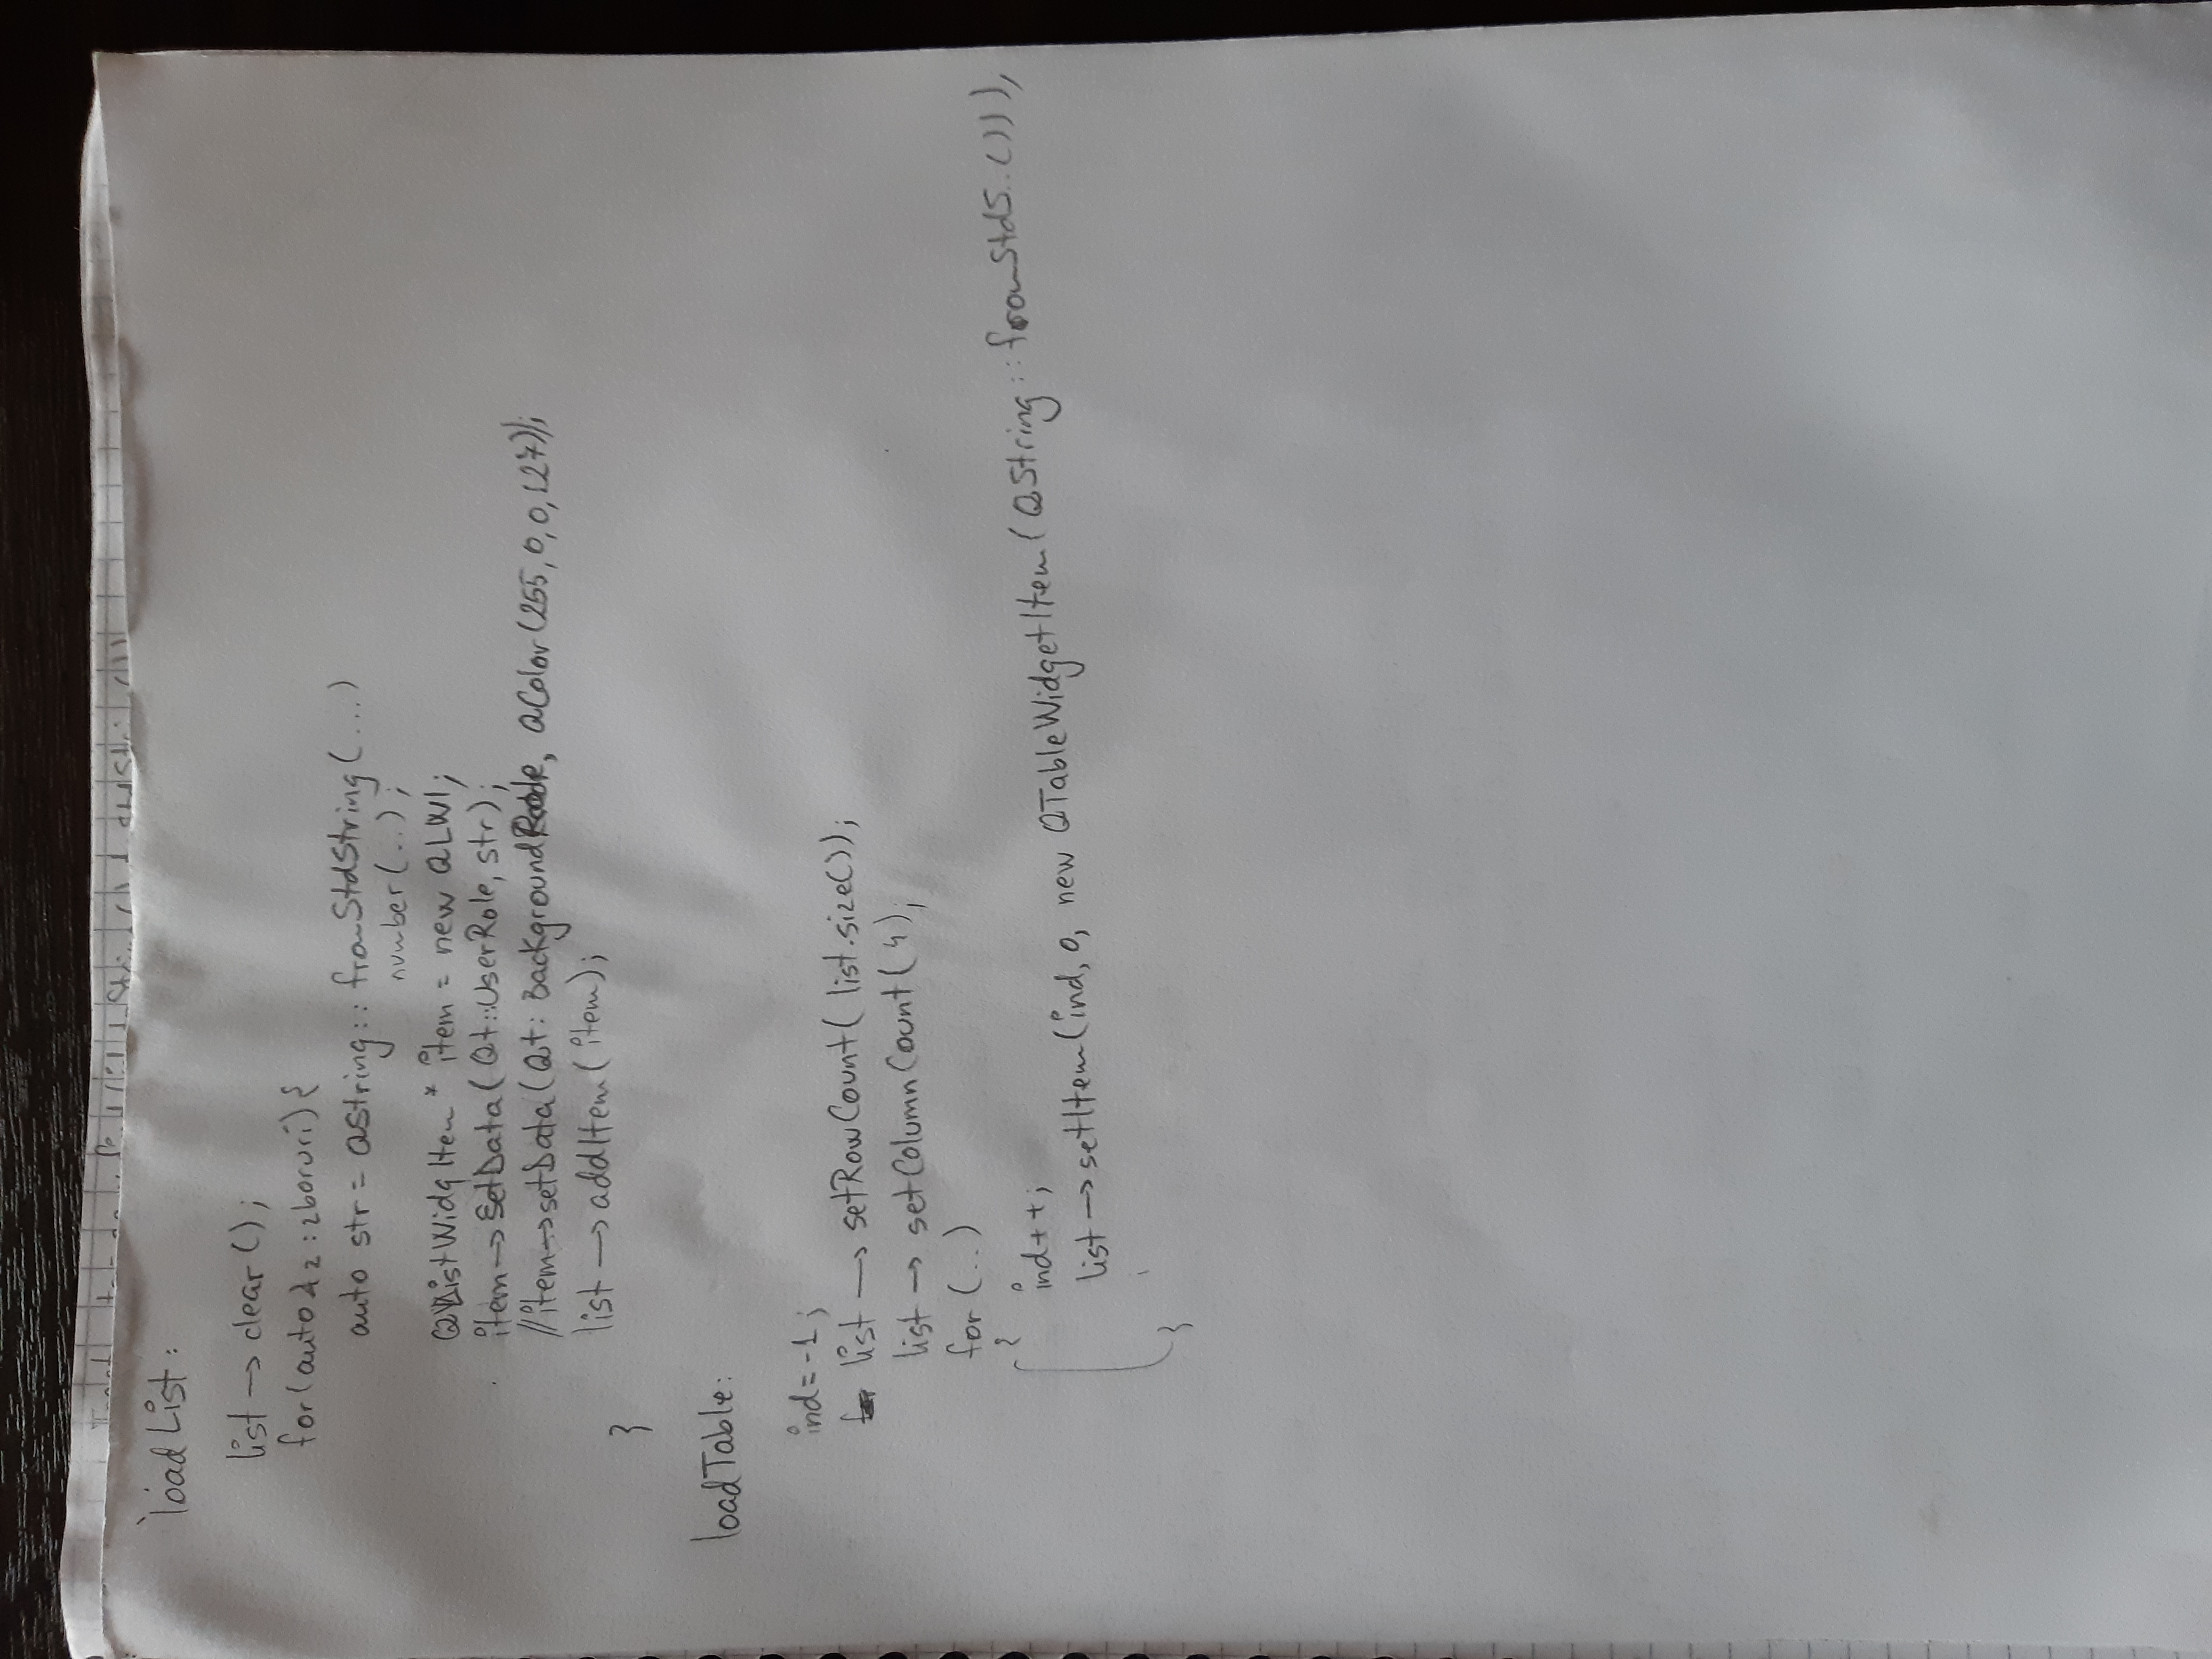 loadList:
list → clear();
for(auto& z : zboruri){
auto str = QString:: fromStdString(...)
number(..);
QListWidgItem * item = new QLWI;
item → setData(Qt::UserRole, str);
//item→setData(Qt: BackgroundRole, QColor(255,0,0,127));
list → addItem(item);
}
loadTable:
ind=-1;
list → setRowCount( list.size());
list → setColumnCount( 4);
for (..)
{
ind++;
list → setItem(ind, 0, new QTableWidgetItem( QString::fromStdS..()));
}